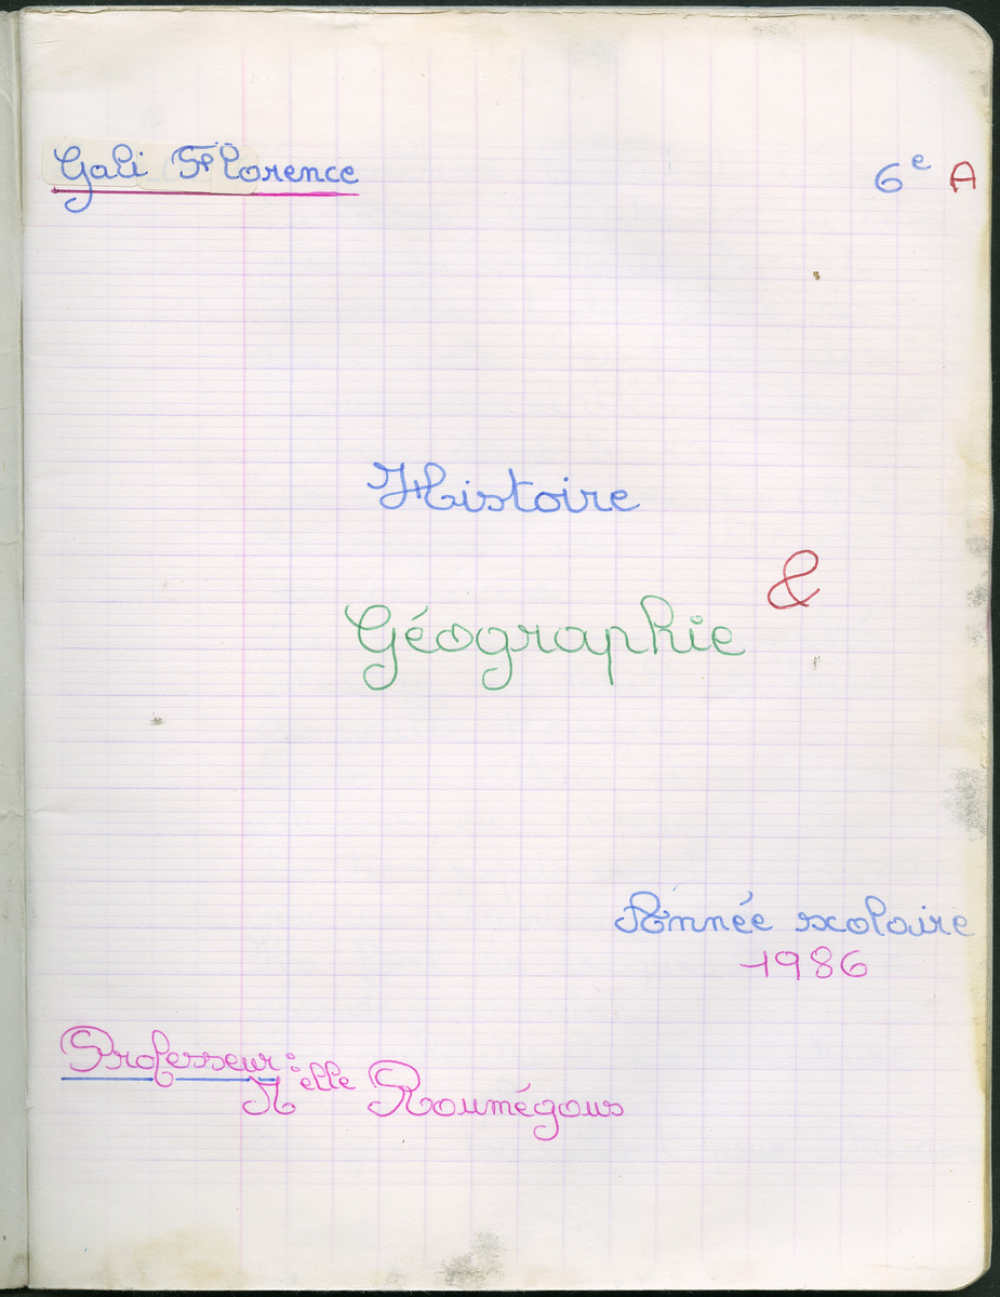 Gali Florence 6e A
Histoire
&
Géographie
Année scolaire
1986
Professeur :
Melle Roumégous